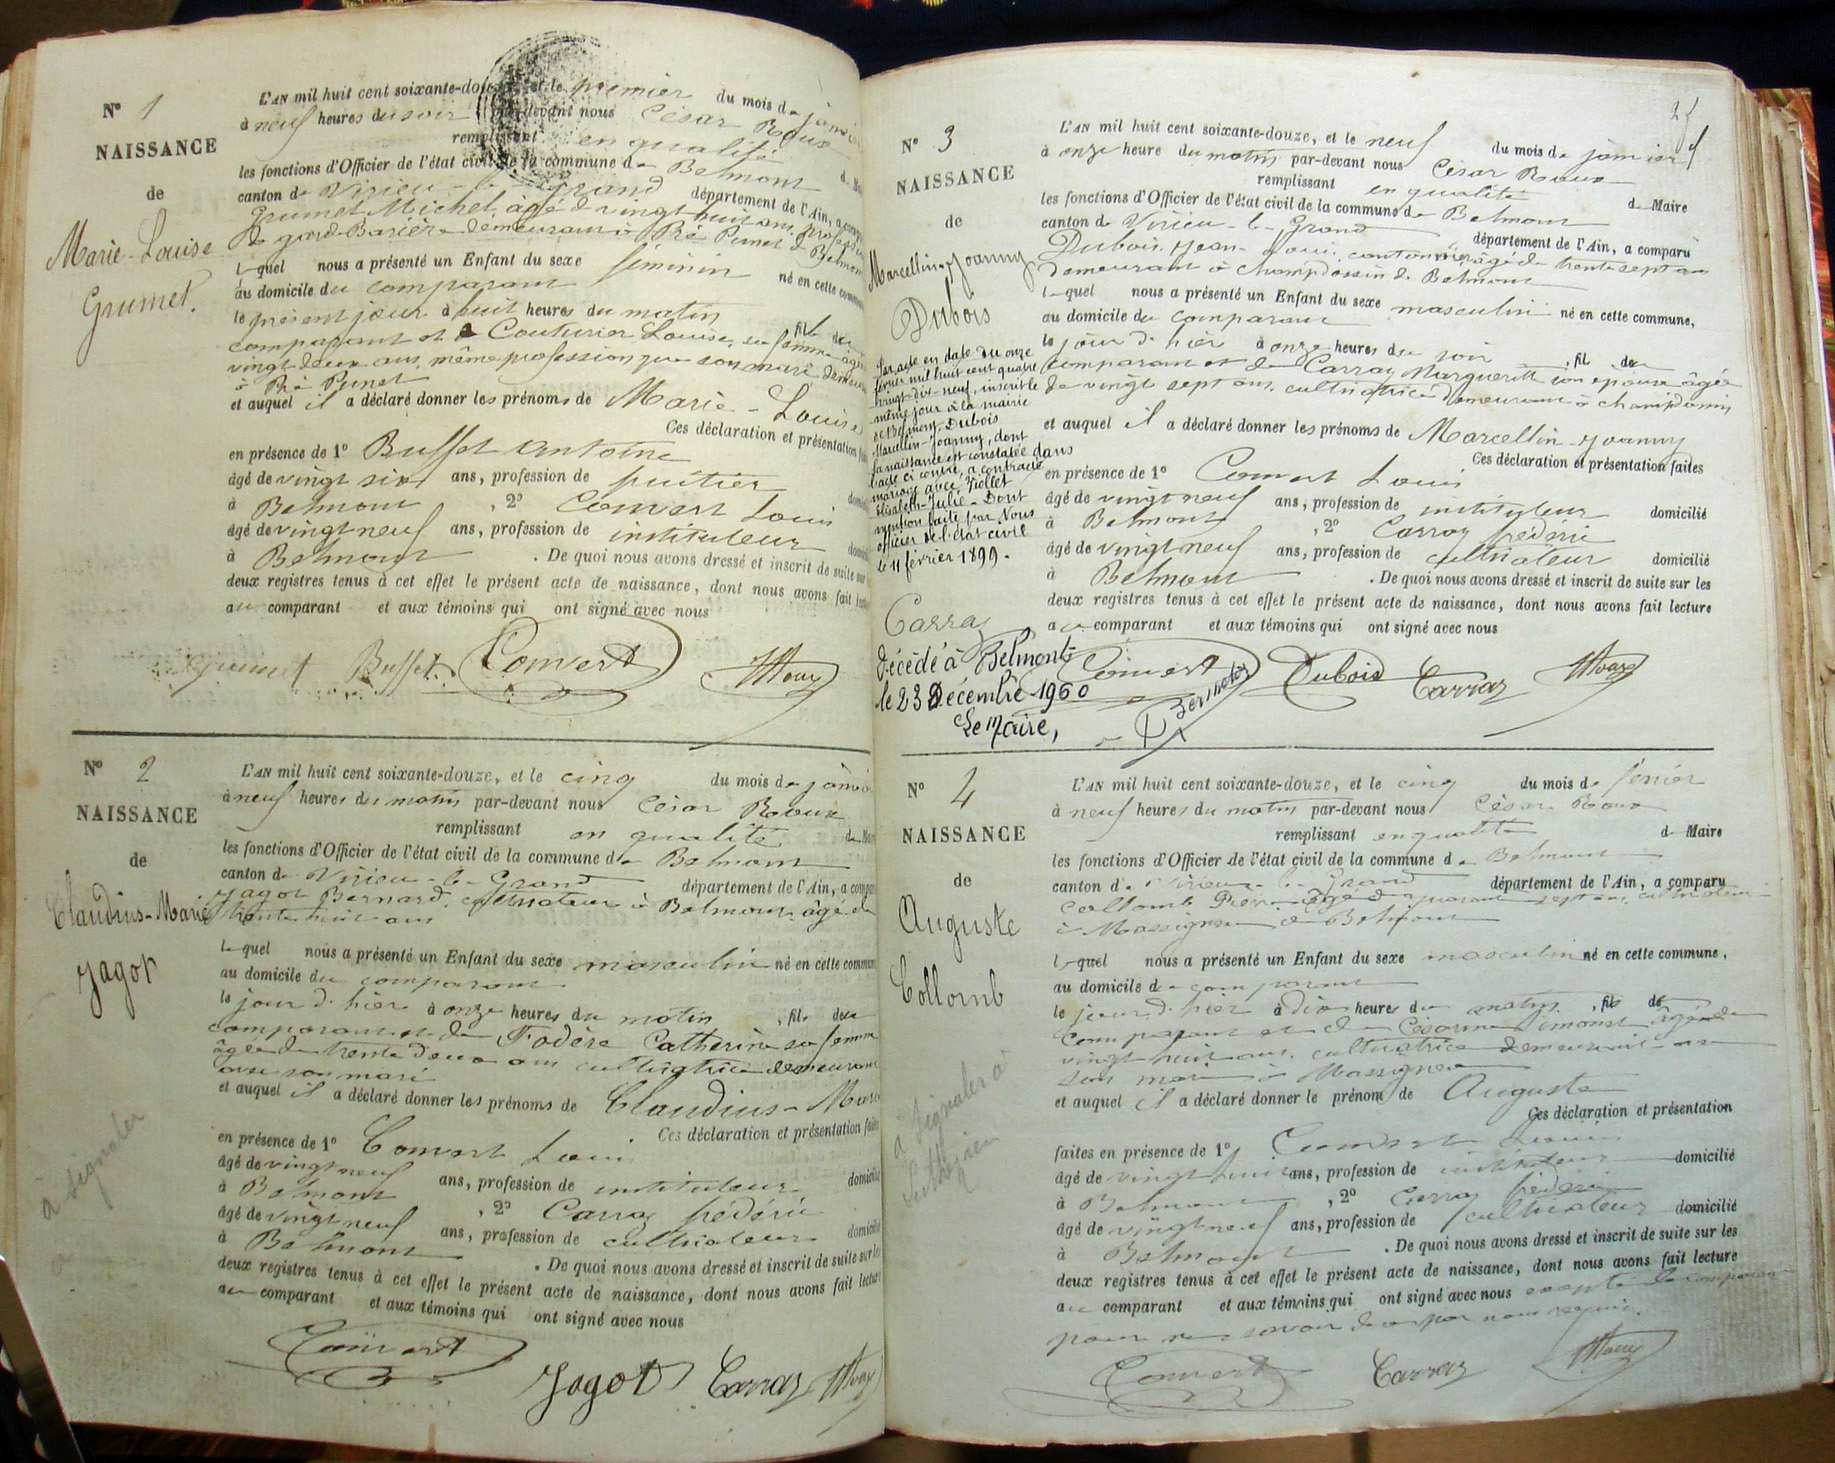 N° 1
NAISSANCE
de
Marie-Louise
Grumet.
L'AN mil huit cent soixante-douze, et le premier du mois de janvier
à neuf heures du soir par-devant nous César Roux
remplissant en qualité
les fonctions d'Officier de l'état civil de la commune de Belmont
canton de Virieu-le-Grand département de l'Ain, a comparu
Grumet Michel, âgé de vingt huit ans, profession
de garde-Barière demeurant à Pré Punet de Belmont
lequel nous a présenté un Enfant du sexe féminin né en cette commune
au domicile du comparant
le présent jour à huit heures du matin, fille du
comparant et de Couturier Louise sa femme âgée
vingt deux ans, même profession que son mari demeurant
à Pré Punet
et auquel il a déclaré donner les prénoms de Marie-Louise
Ces déclaration et présentation
en présence de 1° Buffet Antoine
âgé de vingt six ans, profession de
à Belmont, 2° Convert Louis
âgé de vingt neuf ans, profession de instituteur
à Belmont. De quoi nous avons dressé et inscrit de suite sur
deux registres tenus à cet effet le présent acte de naissance, dont nous avons fait
au comparant et aux témoins qui ont signé avec nous
Grumet Buffet Convert Roux
N° 2
NAISSANCE
de
Claudius-Marie
Jagot
à signaler
L'AN mil huit cent soixante-douze, et le cinq du mois de janvier
à neuf heures du matin par-devant nous César Roux
remplissant en qualité de Maire
les fonctions d'Officier de l'état civil de la commune de Belmont
canton de Virieu-le-Grand département de l'Ain, a comparu
Jagot Bernard, cultivateur à Belmont âgé de
trente huit ans
lequel nous a présenté un Enfant du sexe masculin né en cette commune
au domicile du comparant
le jour d'hier à onze heures du matin, fils du
comparant et de Fodère Catherine sa femme
âgée de trente deux ans cultivatrice demeurant
avec son mari
et auquel il a déclaré donner les prénoms de Claudius-Marie
Ces déclaration et présentation faites
en présence de 1° Convert Louis
âgé de vingt neuf ans, profession de instituteur domicilié
à Belmont, 2° Carraz frédéric
âgé de vingt neuf ans, profession de cultivateur domicilié
à Belmont. De quoi nous avons dressé et inscrit de suite sur les
deux registres tenus à cet effet le présent acte de naissance, dont nous avons fait lecture
au comparant et aux témoins qui ont signé avec nous
Convert Jagot Carraz Roux
N° 3
NAISSANCE
de
Marcellin-Joanny
Dubois
Par acte en date du onze
février mil huit cent quatre
vingt-dix-neuf, inscrit le
même jour à la mairie
de Belmont, Dubois
Marcellin-Joanny, dont
la naissance est constatée dans
l'acte ci contre, a contracté
mariage avec Jiollet
Elisabeth-Julie - Dont
mention faite par Nous
officier de l'état civil
le 11 février 1899.
Carraz
Décédé à Belmont
le 23 Décembre 1960
Le Maire,
L'AN mil huit cent soixante-douze, et le neuf du mois de janvier
à onze heure du matin par-devant nous César Roux
remplissant en qualité de Maire
les fonctions d'Officier de l'état civil de la commune de Belmont
canton de Virieu-le-Grand département de l'Ain, a comparu
Dubois Jean-Louis, cantonnier âgé de trente sept ans
demeurant à champdossin de Belmont
lequel nous a présenté un Enfant du sexe masculin né en cette commune,
au domicile du comparant
le jour d'hier à onze heures du soir, fils du
comparant et de Carraz Marguerite son épouse âgée
de vingt sept ans, cultivatrice demeurant à champdossin
et auquel il a déclaré donner les prénoms de Marcellin-Joanny
Ces déclaration et présentation faites
en présence de 1° Convert Louis
âgé de vingt neuf ans, profession de instituteur domicilié
à Belmont, 2° Carraz frédéric
âgé de vingt neuf ans, profession de cultivateur domicilié
à Belmont. De quoi nous avons dressé et inscrit de suite sur les
deux registres tenus à cet effet le présent acte de naissance, dont nous avons fait lecture
au comparant et aux témoins qui ont signé avec nous
Convert Dubois Carraz Roux
N° 4
NAISSANCE
de
Auguste
Collomb
à signaler à
L'AN mil huit cent soixante-douze, et le cinq du mois de février
à neuf heures du matin par-devant nous César Roux
remplissant en qualité de Maire
les fonctions d'Officier de l'état civil de la commune de Belmont
canton de Virieu-le-Grand département de l'Ain, a comparu
Collomb Pierre âgé de quarante sept ans, cultivateur
à Massignieu de Belmont
lequel nous a présenté un Enfant du sexe masculin né en cette commune,
au domicile du comparant
le jour d'hier à dix heures du matin, fils du
comparant et de Césarine Simonet âgée de
vingt huit ans, cultivatrice demeurant avec
son mari à Massignieu
et auquel il a déclaré donner le prénom de Auguste
Ces déclaration et présentation
faites en présence de 1° Convert Louis
âgé de vingt huit ans, profession de instituteur domicilié
à Belmont, 2° Carraz frédéric
âgé de vingt neuf ans, profession de cultivateur domicilié
à Belmont. De quoi nous avons dressé et inscrit de suite sur les
deux registres tenus à cet effet le présent acte de naissance, dont nous avons fait lecture
au comparant et aux témoins qui ont signé avec nous excepté le comparant
pour ne savoir de ce par nous requis.
Convert Carraz Roux